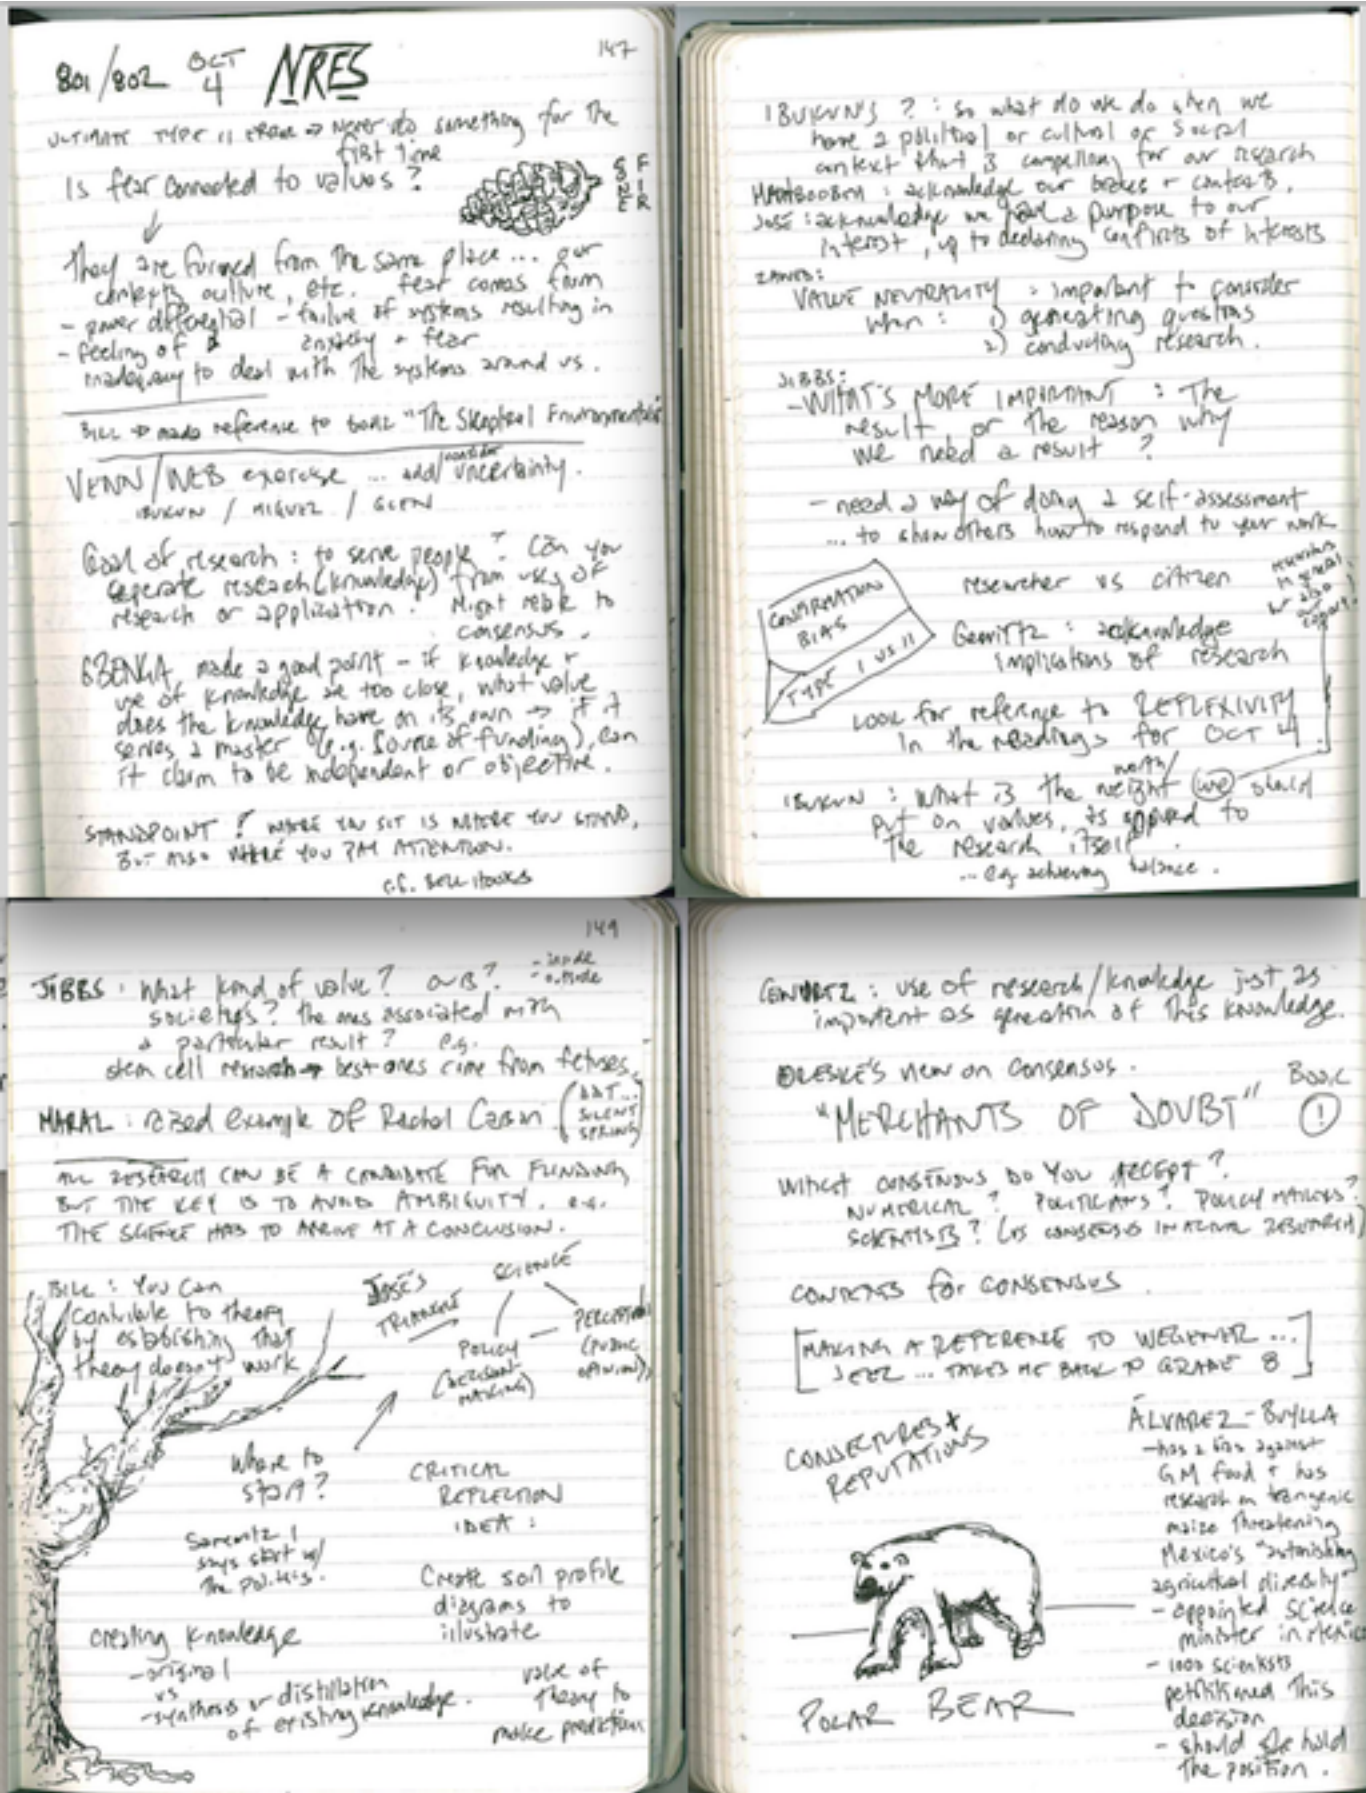 147
801/802 OCT 4 NRES
ULTIMATE TYPE II ERROR → Never do something for the
first time
Is fear connected to values?
CONE
FIR
They are formed from the same place ... our
contexts, culture, etc. fear comes from
- power differential - failure of systems resulting in
- feeling of anxiety + fear
inadequacy to deal with the systems around us.
BILL → made reference to book "The Skeptical Environmentalist"
VENN/WEB exercise ... add/consider uncertainty.
IBUKUN / MIGUEL / GLEN
Goal of research: to serve people? Can you
seperate research (knowledge) from uses of
research or application. Might relate to
consensus.
GBENGA, made a good point - if knowledge +
use of knowledge are too close, what value
does the knowledge have on its own → if it
serves a master (e.g. source of funding), can
it claim to be independent or objective.
STANDPOINT? WHERE YOU SIT IS WHERE YOU STAND,
BUT ALSO WHERE YOU PAY ATTENTION.
c.f. BELL HOOKS
IBUKUN'S ? : so what do we do when we
have a political or cultural or social
context that is compelling for our research
MAHBOOBEH : acknowledge our biases + contexts.
JOSÉ : acknowledge we have a purpose to our
interest, up to declaring conflicts of interests
VALUE NEUTRALITY : important to consider
when : 1) generating questions
2) conducting research.
JIBBS:
- WHAT'S MORE IMPORTANT : The
result, or the reason why
we need a result ?
- need a way of doing a self-assessment
... to show others how to respond to your work
researcher vs citizen
CONFIRMATION
BIAS
TYPE I VS II
Gewirtz : acknowledge
implications of research
LOOK for reference to REFLEXIVITY
in the readings for OCT 4
IBUKUN : What is the worth/weight we should
put on values, as opposed to
the research itself.
... e.g. achieving balance.
149
JIBBS : What kind of value? OURS? - inside
- outside
societies? The ones associated with
a particular result? e.g.
stem cell research → best ones come from fetuses.
MARAL : raised example of Rachel Carson (DDT ...
SILENT
SPRING)
ALL RESEARCH CAN BE A CANDIDATE FOR FUNDING,
BUT THE KEY IS TO AVOID AMBIGUITY. e.g.
THE SCIENCE HAS TO ARRIVE AT A CONCLUSION.
BILL : You can
contribute to theory
by establishing that
theory doesn't work
JOSÉ'S
SCIENCE
POLICY
(DECISION
MAKING)
PERCEPTION
(PUBLIC
OPINION)
Where to
start?
Sarewitz
says start w/
the politics.
CRITICAL
REFLECTION
IDEA :
Create soil profile
diagrams to
illustrate
creating knowledge
- original
vs
- synthesis or distillation
of existing knowledge.
value of
theory to
make predictions
GEWIRTZ : use of research/knowledge just as
important as generation of this knowledge.
ORESKE'S view on consensus.
"MERCHANTS OF DOUBT" BOOK !
WHAT CONSENSUS DO YOU ACCEPT?
NUMERICAL? POLITICIANS? POLICY MAKERS?
SCIENTISTS? (VS CONSENSUS IN ACTUAL RESEARCH)
CONTEXTS for CONSENSUS
[MAKING A REFERENCE TO WEGENER ...
JEEZ ... TAKES ME BACK TO GRADE 8]
CONJECTURES +
REPUTATIONS
POLAR BEAR
ÁLVAREZ-BUYLLA
- has a bias against
GM food + has
research on transgenic
maize threatening
Mexico's "astonishing
agricultural diversity"
- appointed science
minister in Mexico
- 1000 scientists
petitioned this
decision
- should she hold
the position.